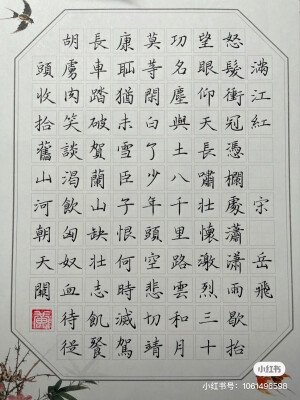 滿江紅 宋 岳飛
怒髮衝冠憑欄處瀟瀟雨歇抬
望眼仰天長嘯壯懷激烈三十
功名塵與土八千里路雲和月
莫等閑白了少年頭空悲切靖
康恥猶未雪臣子恨何時滅駕
長車踏破賀蘭山缺壯志飢餐
胡虜肉笑談渴飲匈奴血待從
頭收拾舊山河朝天闕
小红书
小红书号:1061496598